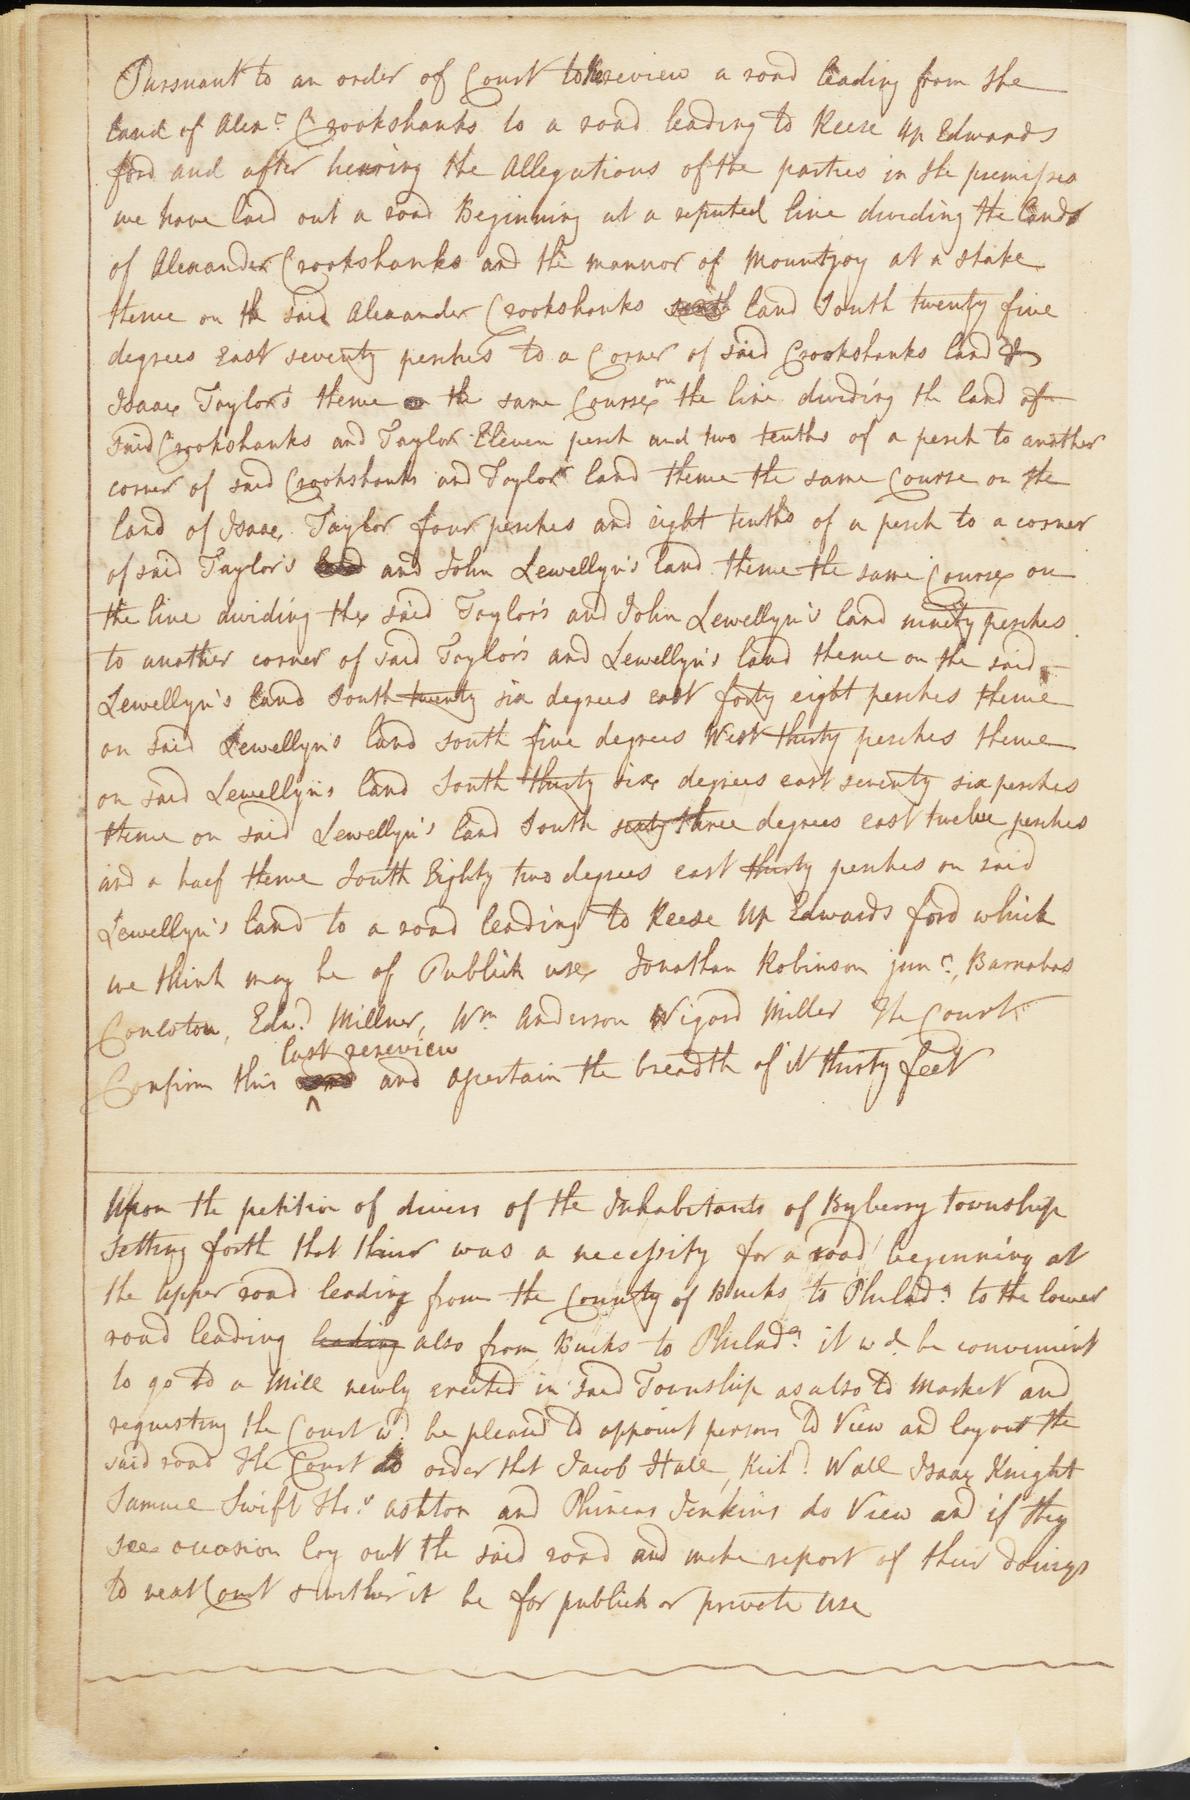 Pursuant to an order of Court to Rereview a road leading from the
land of Alexr. Crookshanks to a road leading to Reese Up Edwards
ford and after hearing the Allegations of the parties in the premises
we have laid out a road Beginning at a reputed line dividing the lands
of Alexander Crookshanks and the mannor of Mountjoy at a stake
thence on the said Alexander Crookshanks land South twenty five
degrees East seventy perches to a Corner of said Crookshanks land &
Isaac Taylor's thence the same Course on the line dividing the land of
said Crookshanks and Taylor Eleven perch and two tenths of a perch to another
corner of said Crookshanks and Taylor's land thence the same Course on the
land of Isaac Taylor four perches and eight tenths of a perch to a corner
of said Taylor's and John Lewellyn's land thence the same Course on
the line dividing the said Taylor's and John Lewellyn's land ninety perches
to another corner of said Taylor's and Lewellyn's land thence on the said
Lewellyn's land South twenty six degrees east forty eight perches thence
on said Lewellyn's land south five degrees West thirty perches thence
on said Lewellyn's land South thirty six degrees east seventy six perches
thence on said Lewellyn's land South sixty three degrees east twelve perches
and a half thence South Eighty two degrees east thirty perches on said
Lewellyn's land to a road leading to Reese Up Edwards ford which
we think may be of Publick use Jonathan Robinson junr., Barnabas
Coulston, Edwd. Millner, Wm Anderson Wigard Miller The Court
Confirm this last rereview and assertain the breadth of it thirty feet
Upon the petition of divers of the Inhabitants of Byberry township
Setting forth that their was a necessity for a road beginning at
the upper road leading from the County of Bucks to Philada. to the lower
road leading leading also from Bucks to Philada. it wd. be convenient
to go to a Mill newly erected in said Township as also to Market and
requesting the Court wd. be pleased to appoint persons to View and lay out the
said road The Court do order that Jacob Hall, Richd. Wall Isaac Knight
Samuel Swift Thos. Ashton and Phineas Jenkins do View and if they
see occasion lay out the said road and make report of their doings
to next Court & wether it be for publick or private use